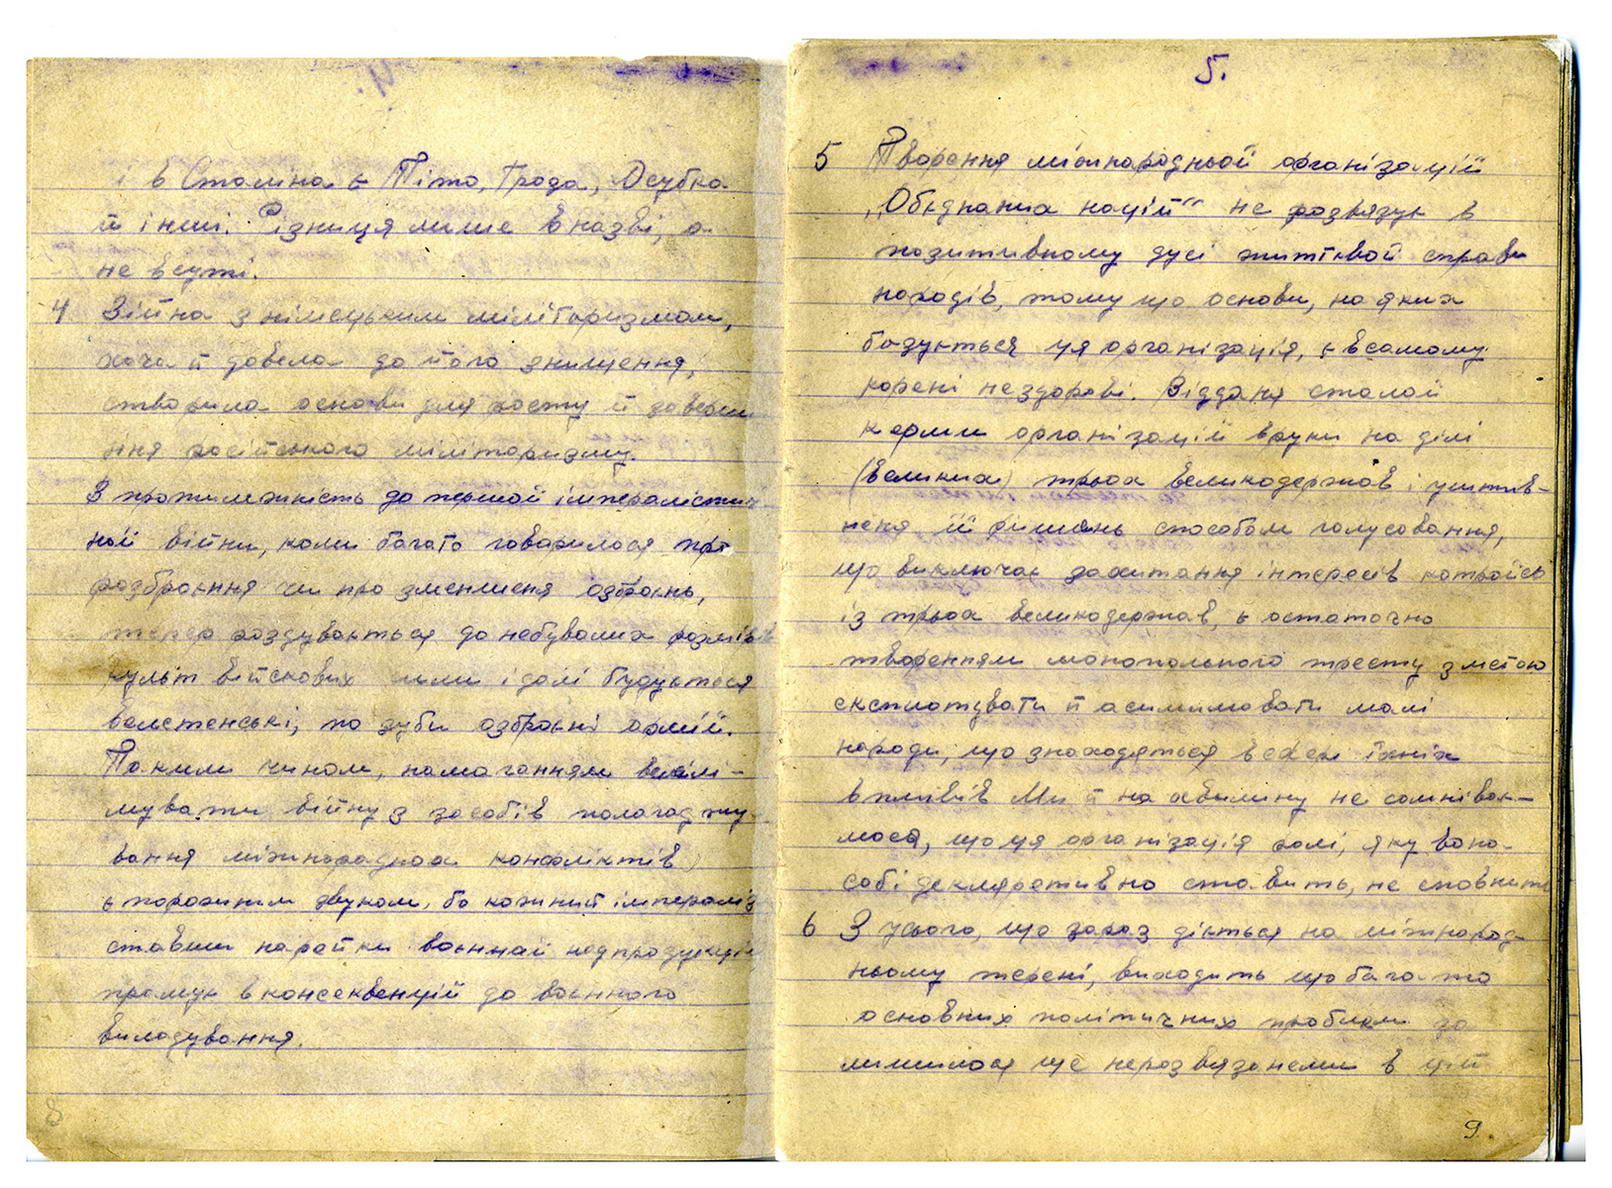 і в Сталіна є Тіто, Гроза, Осубка
й інші. Різниця лише в назві, а
не в суті.
4 Війна з німецьким мілітаризмом,
хоча й довела до його знищення,
створила основи для росту й заверше
ння російського мілітаризму.
В протилежність до першой імперялістич
ной війни, коли багато говорилося про
розброєння чи про зменшеня озброєнь,
тепер роздувається до небувалих розмірів
культ військових сили і далі будуються
велетенські, по зуби озброєні армії.
Таким чином, намаганням
мувати війну з засобів полагоджу-
вання міжнародных конфліктів,
є порожним звуком, бо кожний імпераліз
ставши на рейки воєнной надпродукції
прямує в консеквенції до воєнного
виладування.
8
5.
5 Творення міжнародньой організації
„Обєднаних націй" не розвязує в
позитивному дусі життєвой справи
народів, тому що основи, на яких
базується ця організація, є в самому
корені нездорові. Віддання сталой
керми організації в руки на ділі
(великих) трьох великодержав і
неня її рішень способом голусовання,
що виключає захитання інтересів котройсь
із трьох великодержав, є остаточно
творенням монопольного тресту з метою
експлотувати й асимілювати малі
народи, що знаходяться в сфері їхніх
впливів Ми й на хвилину не сомніває-
мося, що ця організація ролі, яку вона
собі декляративно ставить, не сповнить
6 З усього, що зараз діється на міжнарод-
ньому терені, виходить що багато
основних політичних проблем за
лишилося ще нерозвязаними в цій
9.